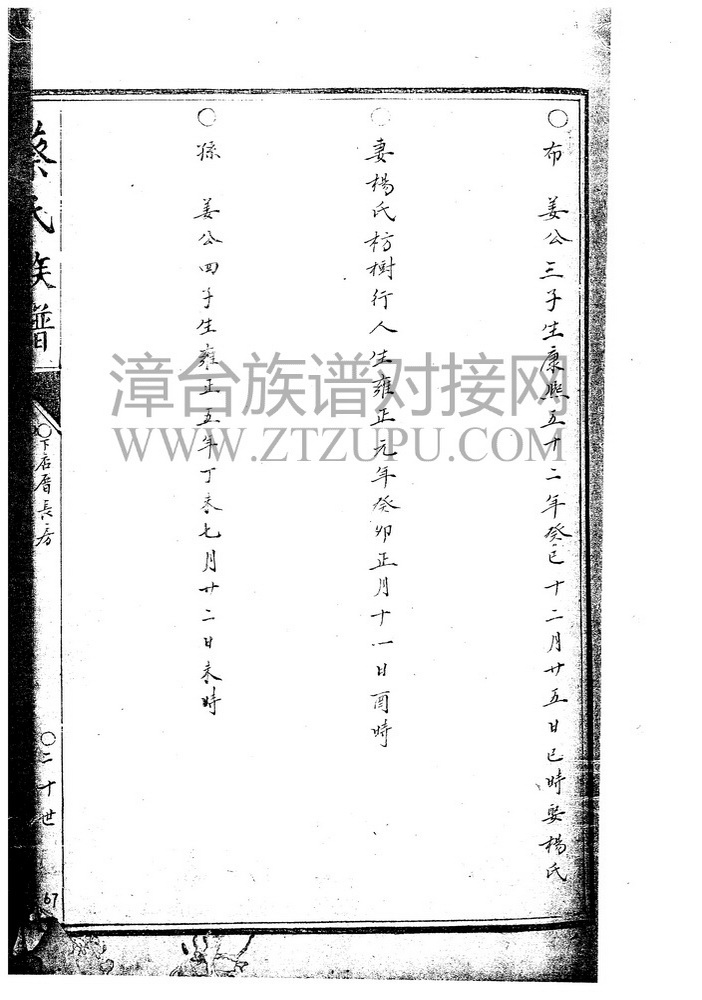 ○布　姜公三子生康熙五十二年癸巳十二月廿五日巳時娶楊氏
○妻楊氏枋樹行人生雍正元年癸卯正月十一日酉時
○孫　姜公四子生雍正五年丁未七月廿二日未時
蔡氏族譜
○下店厝長房
○二十世
67
漳台族谱对接网
WWW.ZTZUPU.COM